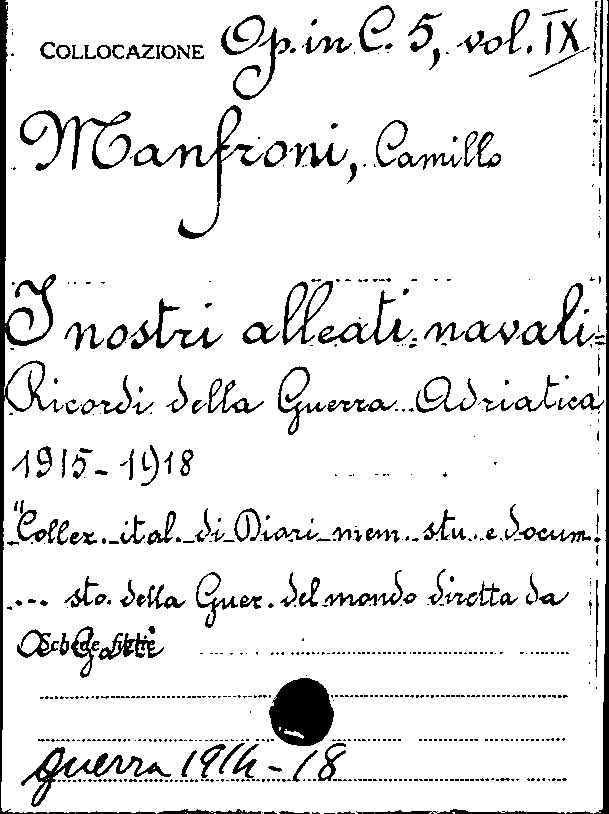 COLLOCAZIONE Op. in C. 5, vol. IX
Manfroni, Camillo
I nostri alleati navali=
Ricordi della Guerra Adriatica
1915-1918
"Collez. ital. di Diari mem. stu. e docum.
... sto. della Guer. del mondo diretta da
A. Gatti
guerra 1914-18